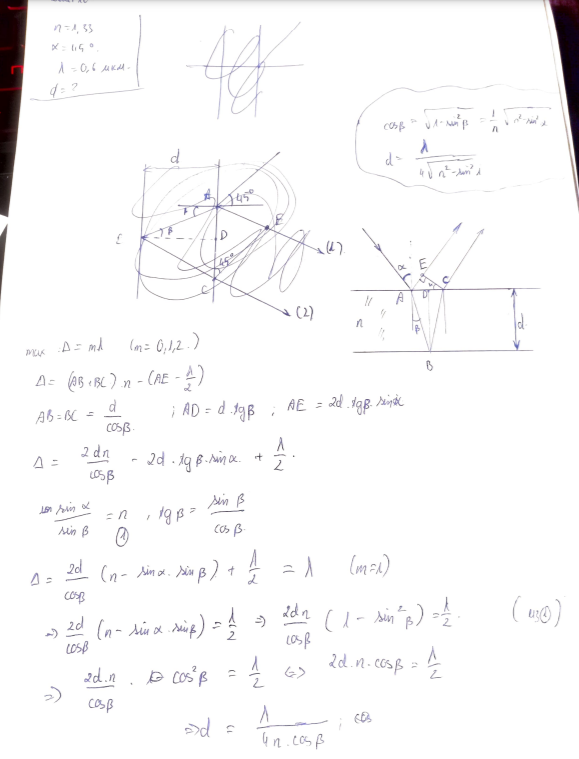 n=1,33
α=45°.
λ=0,6 мкм.
d=?
cosβ = √(1-sin²β) = 1/n √(n²-sin²α)
d = λ / 4√(n²-sin²α)
d
A
45°
E
β
D
E
(1)
45°
C
(2)
α
E
A
D
C
n
β
d
B
max Δ = mλ (m=0,1,2.)
Δ = (AB+BC).n - (AE - λ/2)
AB=BC = d/cosβ. ; AD = d.tgβ ; AE = 2d.tgβ.sinα
Δ = 2dn/cosβ - 2d.tgβ.sinα + λ/2.
sinα/sinβ = n ① , tgβ = sinβ/cosβ.
Δ = 2d/cosβ (n - sinα.sinβ) + λ/2 = λ (m=1)
=> 2d/cosβ (n - sinα.sinβ) = λ/2 => 2dn/cosβ (1 - sin²β) = λ/2. (из①)
=> 2d.n/cosβ . cos²β = λ/2 <=> 2d.n.cosβ = λ/2
=> d = λ/4n.cosβ ; cos